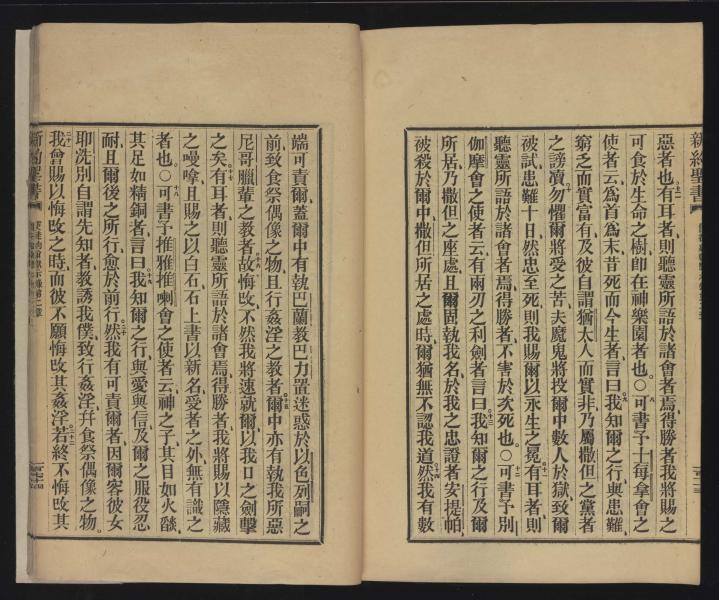 新約聖書
惡者也有耳者則聽靈所語於諸會者焉得勝者我將賜之
可食於生命之樹卽在神樂園者也○可書予士每拿會之
使者云爲首爲末昔死而今生者言曰我知爾之行與患難
窮乏而實富有及彼自謂猶太人而實非乃屬撒但之黨者
之謗瀆勿懼爾將愛之苦夫魔鬼將投爾中數人於獄致爾
被試患難十日然忠至死則我賜爾以永生之冕有耳者則
聽靈所語於諸會者焉得勝者不害於次死也○可書予別
伽摩會之使者云有兩刃之利劍者言曰我知爾之行及爾
所居乃撒但之座處且爾固執我名於我之忠證者安提帕
被殺於爾中撒但所居之處時爾猶無不認我道然我有數
端可責爾蓋爾中有執巴蘭教巴力置迷惑於以色列嗣之
前致食祭偶像之物且行姦淫之教者爾中亦有執我所惡
尼哥臘輩之教者故悔改不然我將速就爾以我口之劍擊
之矣有耳者則聽靈所語於諸會焉得勝者我將賜以隱藏
之嗎嗱且賜之以白石石上書以新名愛者之外無有識之
者也○可書予推雅推喇會之使者云神之子其目如火燄
其足如精銅者言曰我知爾之行與愛與信及爾之服役忍
耐且爾後之所行愈於前行然我有可責爾者因爾容彼女
耶洗別自謂先知者教誘我僕致行姦淫幷食祭偶像之物
我曾賜以悔改之時而彼不願悔改其姦淫若終不悔改其
新約聖書